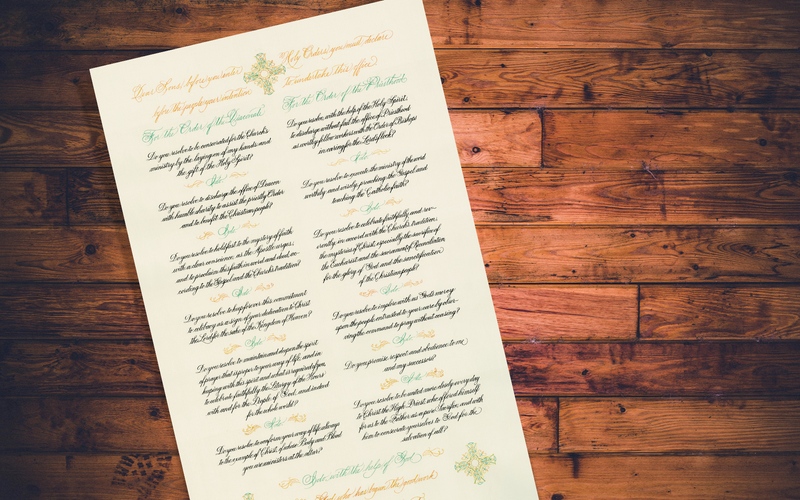 Dear Sons, before you enter Holy Orders, you must declare
before the people your intention to undertake this office.
For the Order of the Diaconate
Do you resolve to be consecrated for the Church's
ministry by the laying on of my hands and
the gift of the Holy Spirit?
I do
Do you resolve to discharge the office of Deacon
with humble charity to assist the priestly Order
and to benefit the Christian people?
I do
Do you resolve to hold fast to the mystery of faith
with a clear conscience, as the Apostle urges,
and to proclaim this faith in word and deed, ac-
cording to the Gospel and the Church's tradition?
I do
Do you resolve to keep forever this commitment
to celibacy as a sign of your dedication to Christ
the Lord for the sake of the Kingdom of Heaven?
I do
Do you resolve to maintain and deepen the spirit
of prayer that is proper to your way of life, and in
keeping with this spirit and what is required of you,
to celebrate faithfully the Liturgy of the Hours
with and for the People of God, and indeed
for the whole world?
I do
Do you resolve to conform your way of life always
to the example of Christ, of whose Body and Blood
you are ministers at the altar?
For the Order of the Priesthood
Do you resolve, with the help of the Holy Spirit,
to discharge without fail the office of Priesthood
as worthy fellow workers with the Order of Bishops
in caring for the Lord's flock?
I do
Do you resolve to exercise the ministry of the word
worthily and wisely, preaching the Gospel and
teaching the Catholic faith?
I do
Do you resolve to celebrate faithfully and rev-
erently, in accord with the Church's tradition,
the mysteries of Christ, especially the sacrifice of
the Eucharist and the sacrament of Reconciliation
for the glory of God and the sanctification
of the Christian people?
I do
Do you resolve to implore with us God's mercy
upon the people entrusted to your care by obser-
ving the command to pray without ceasing?
I do
Do you promise respect and obedience to me
and my successors?
I do
Do you resolve to be united more closely every day
to Christ the High Priest, who offered himself
for us to the Father as a pure Sacrifice, and with
him to consecrate yourselves to God for the
salvation of all?
I do, with the help of God
God, who has begun the good work